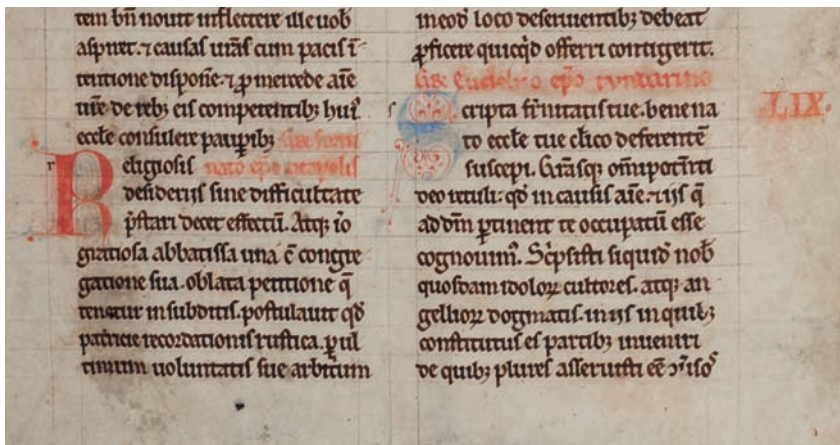 tem bn̄ nouit inflectere ille uob̄
aspiret. ⁊ causas ur̄as cum pacis ī
tentione disponē. ⁊ ꝓ mercede aīe
tūe de reb; eis competentib; huiꝰ
eccl̄e consulere pauꝑib;
Religiosis
desiderijs sine difficultate
p̄stari decet effectū. Atq; iō
gratiosa abbatissa una c̄ congre
gatione sua. oblata petitione q̄
tenetur in subditis. postulauit qd̄
patricie recordationis rustica. ꝑ ul
timum uoluntatis sue arbitrium
in eod̄ loco deseruientib; debeat
ꝓficere quicq̇d offerri contigerit.
Scripta fr̄nitatis tue. bene na
to eccl̄e tue cl̄ico deferentē
suscepi. Gr̄asq; om̄ipotēnti
deo retuli. qd̄ in causis aīe. ⁊ ijs q̄
ad dm̄ ꝑtinent te occupatū esse
cognouimꝰ. Sc̄psisti siquid̄ nob̄
quosdam idoloꝝ cultores. atq; an
gellioꝝ dogmatis. in ijs in quib;
constitutus es partib; inueniri
de quib; plures asseruisti eē
LIX.